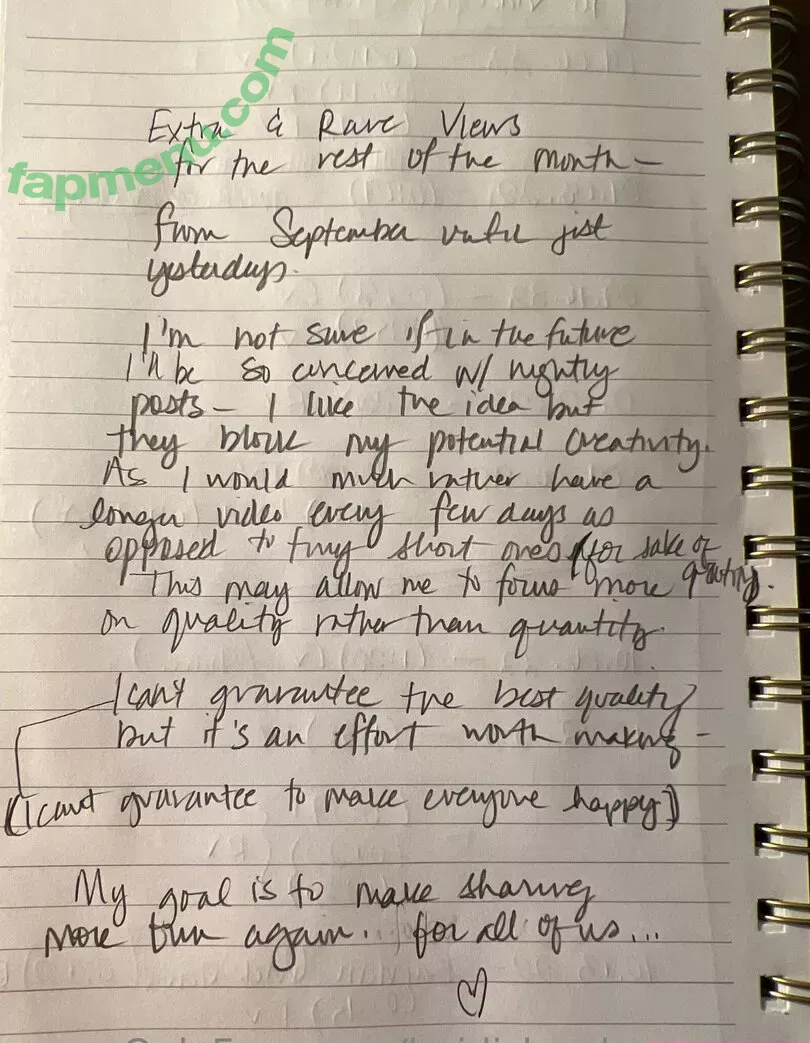 fapmenu.com
Extra & Rare Views
for the rest of the month –
from September until just
yesterdays.
I'm not sure if in the future
I'll be so concerned w/ nightly
posts – I like the idea but
they block my potential creativity.
As I would much rather have a
longer video every few days as
opposed to tiny short ones for sake of
This may allow me to focus more
on quality rather than quantity.
I can't guarantee the best quality
but it's an effort worth making –
(I can't guarantee to make everyone happy)
My goal is to make sharing
more fun again. for all of us...